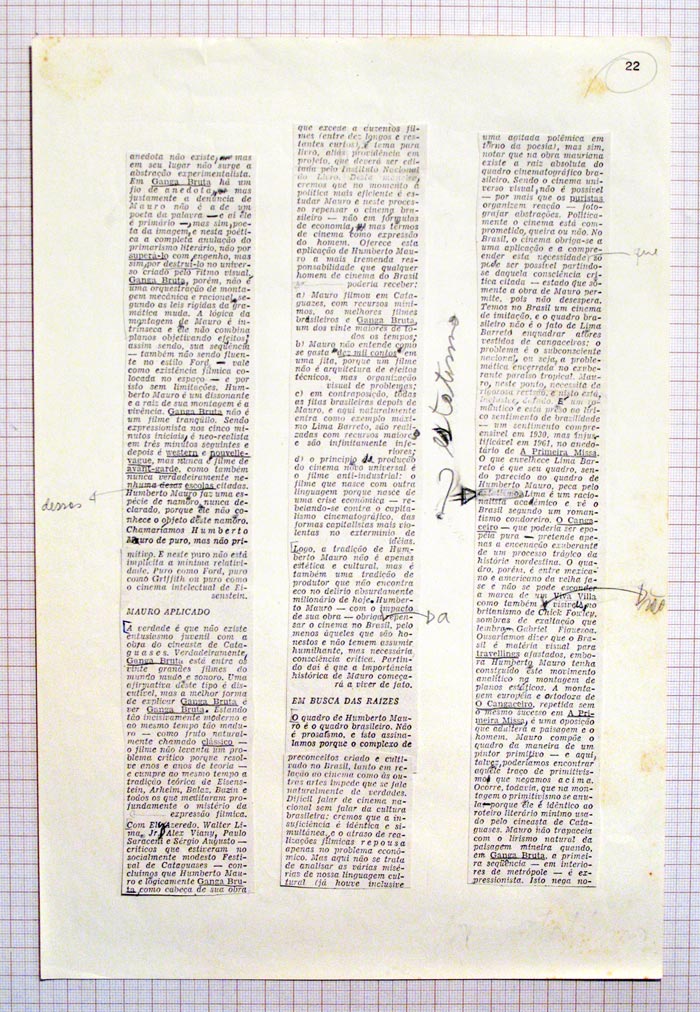 22
anedota não existe, mas
em seu lugar não surge a
abstração experimentalista.
Em Ganga Bruta há um
fio de anedota, mas
justamente a denúncia de
Mauro não é a de um
poeta da palavra — e aí ele
é primário — mas sim, poe-
ta da imagem, e nesta poéti-
ca a completa anulação do
primarismo literário, não por
superá-lo com engenho, mas
sim, por destruí-lo no univer-
so criado pelo ritmo visual.
Ganga Bruta, porém, não é
uma orquestração de monta-
gem mecânica e racional, se-
gundo as leis rígidas da gra-
mática muda. A lógica da
montagem de Mauro é in-
trínseca e ele não combina
planos objetivando efeitos;
assim sendo, sua seqüência
— também não sendo fluen-
te no estilo Ford, — vale
como existência fílmica co-
locada no espaço — e por
isso sem limitações. Hum-
berto Mauro é um dissonante
e a raiz de sua montagem é a
vivência. Ganga Bruta não é
um filme tranqüilo. Sendo
expressionista nos cinco mi-
nutos iniciais, é neo-realista
em três minutos seguintes e
depois é western e nouvelle-
vague, mas nunca é filme de
avant-garde, como também
nunca verdadeiramente ne-
nhuma desas escolas citadas.
dessas
Humberto Mauro faz uma es-
pécie de namoro, nunca de-
clarado, porque êle não co-
nhece o objeto dêste namôro.
Chamaríamos Humberto
Mauro de puro, mas não pri-
mitivo. E neste puro não está
implícita a mínima relativi-
dade. Puro como Ford, puro
como Griffith ou puro como
o cinema intelectual de Ei-
senstein.
MAURO APLICADO
A verdade é que não existe
entusiasmo juvenil com a
obra do cineasta de Cata-
guases. Verdadeiramente,
Ganga Bruta está entre os
vinte grandes filmes do
mundo mudo e sonoro. Uma
afirmativa dêste tipo é dis-
cutível, mas a melhor forma
de explicar Ganga Bruta é
ver Ganga Bruta. Estando
tão incisivamente moderno e
ao mesmo tempo tão madu-
ro — como fruto natural-
mente chamado clássico —
o filme não levanta um pro-
blema crítico porque resol-
ve anos e anos de teoria —
e cumpre ao mesmo tempo a
tradição teórica de Eisens-
tein, Arheim, Balaz, Bazin e
todos os que meditaram pro-
fundamente o mistério da
expressão fílmica.
Com Ely Azeredo, Walter Li-
ma, Jr., Alez Viany, Paulo
Saraceni e Sérgio Augusto —
críticos que estiveram no
socialmente modesto Festi-
val de Cataguases — con-
cluímos que Humberto Mau-
ro e lògicamente Ganga Bru-
ta como cabeça de sua obra
que excede a duzentos fil-
mes (entre dez longos e res-
tantes curtos), é tema para
livro, aliás providência em
projeto, que deverá ser edi-
tada pelo Instituto Nacional
do Livro. Desta maneira,
cremos que no momento a
política mais eficiente é es-
tudar Mauro e neste proces-
so repensar o cinema bra-
sileiro — não em fórmulas
de economia, mas têrmos
de cinema como expressão
do homem. Oferece esta
aplicação de Humberto Mau-
ro a mais tremenda res-
ponsabilidade que qualquer
homem de cinema do Brasil
poderia receber:
a) Mauro filmou em Cata-
guazes, com recursos míni-
mos, os melhores filmes
brasileiros e Ganga Bruta,
um dos vinte maiores de to-
dos os tempos;
b) Mauro não entende como
se gosta "dez mil contos" em
uma fita, porque um filme
não é arquitetura de efeitos
técnicos, mas organização
visual de problemas;
c) em contraposição, todas
as fitas brasileiras depois de
Mauro, e aqui naturalmente
entra como exemplo máxi-
mo Lima Barreto, são reali-
zadas com recursos maiores
e são infinitamente infe-
riores;
d) o princípio da produção
do cinema novo universal é
o filme anti-industrial: o
filme que nasce com outra
linguagem porque nasce de
uma crise econômica — re-
belando-se contra o capita-
lismo cinematográfico, das
formas capitalistas mais vio-
lentas no extermínio de
idéias.
Logo, a tradição de Hum-
berto Mauro não é apenas
estética e cultural, mas é
também uma tradição de
produtor que não encontra
eco no delírio absurdamente
milionário de hoje. Humber-
to Mauro — com o impacto
de sua obra — obriga pen-
a
sar o cinema no Brasil, pelo
menos àqueles que são ho-
nestos e não temem assumir
humilhante, mas necessária
consciência crítica. Partin-
do daí é que a importância
histórica de Mauro começa-
rá a viver de fato.
EM BUSCA DAS RAIZES
O quadro de Humberto Mau-
ro é o quadro brasileiro. Não
é prosaísmo, e isto assina-
lamos porque o complexo de
preconceitos criado e culti-
vado no Brasil, tanto em re-
lação ao cinema como às ou-
tras artes impede que se fale
naturalmente de verdades.
Difícil falar de cinema na-
cional sem falar da cultura
brasileira: cremos que a in-
suficiência é idêntica e si-
multânea, e o atraso de rea-
lizações fílmicas repousa
apenas no problema econô-
mico. Mas aqui não se trata
de analisar as várias misé-
rias de nossa linguagem cul-
tural (já houve inclusive
uma agitada polêmica em
tôrno da poesia), mas sim,
notar que na obra mauriana
existe a raiz absoluta do
quadro cinematográfico bra-
sileiro. Sendo o cinema uni-
verso visual, não é possível
— por mais que os puristas
organizem reação — foto-
grafar abstrações. Política-
mente o cinema está com-
prometido, queira ou não. No
Brasil, o cinema obriga-se a
uma aplicação e a compre-
ender esta necessidade só
que
pode ser possível partindo-
se daquela consciência crí-
tica citada — estado que sò-
mente a obra de Mauro per-
mite, pois não desespera.
Temos no Brasil um cinema
de imitação, e o quadro bra-
sileiro não é o fato de Lima
Barreto enquadrar atôres
vestidos de cangaceiros; o
problema é o subconsciente
nacional, ou seja, a proble-
mática encerrada no exube-
rante paraíso tropical. Mau-
ro, neste ponto, necessita de
rigorosa revisão, e nisto está,
inclusive, datado. É um ro-
mântico e está prêso ao líri-
co sentimento de brasilidade
— um sentimento compre-
ensível em 1930, mas injus-
tificável em 1961, no anedo-
tário de A Primeira Missa.
O que envelhece Lima Bar-
reto é que seu quadro, sen-
do parecido do quadro de
Humberto Mauro, peca pelo
estatismo
Lima é um racio-
nalista acadêmico e vê o
Brasil segundo um roman-
tismo condoreiro. O Canga-
ceiro — que poderia ser epo-
péia pura — pretende ape-
nas a encenação exuberante
de um processo trágico da
história nordestina. O qua-
dro, porém, é entre mexica-
no e americano da velha fa-
se e não se pode esconder
a marca de um Viva Villa
como também é visível no
são
britanismo de Chick Fowley,
sombras de exaltação que
lembram Gabriel Figueroa.
Ousaríamos dizer que o Bra-
sil é matéria visual para
travellings afastados, embo-
ra Humberto Mauro tenha
construído êste movimento
analítico na montagem de
planos estáticos. A monta-
gem européia e ortodoxa de
O Cangaceiro, repetida sem
o mesmo sucesso em A Pri-
meira Missa, é uma oposição
que adultera a paisagem e o
homem. Mauro compõe o
quadro da maneira de um
pintor primitivo — e aqui,
talvez, poderíamos encontrar
aquêle traço de primitivis-
mo que negamos acima.
Ocorre, todavia, que na mon-
tagem o primitivismo se anu-
la porque êle é idêntico ao
roteiro literário mínimo usa-
do pelo cineasta de Cata-
guases. Mauro não trapaceia
com o lirismo natural da
paisagem mineira quando,
em Ganga Bruta, a primei-
ra seqüência — em interio-
res de metrópole — é ex-
pressionista. Isto nega no-